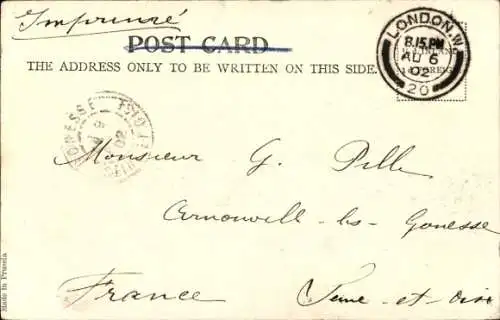 Imprimé
POST CARD
THE ADDRESS ONLY TO BE WRITTEN ON THIS SIDE.
LONDON.W.
8.15.PM
AU 6
02
20
Monsieur G. Pille
Arnouville-les-Gonesse
France Seine-et-Oise
Made in Prussia